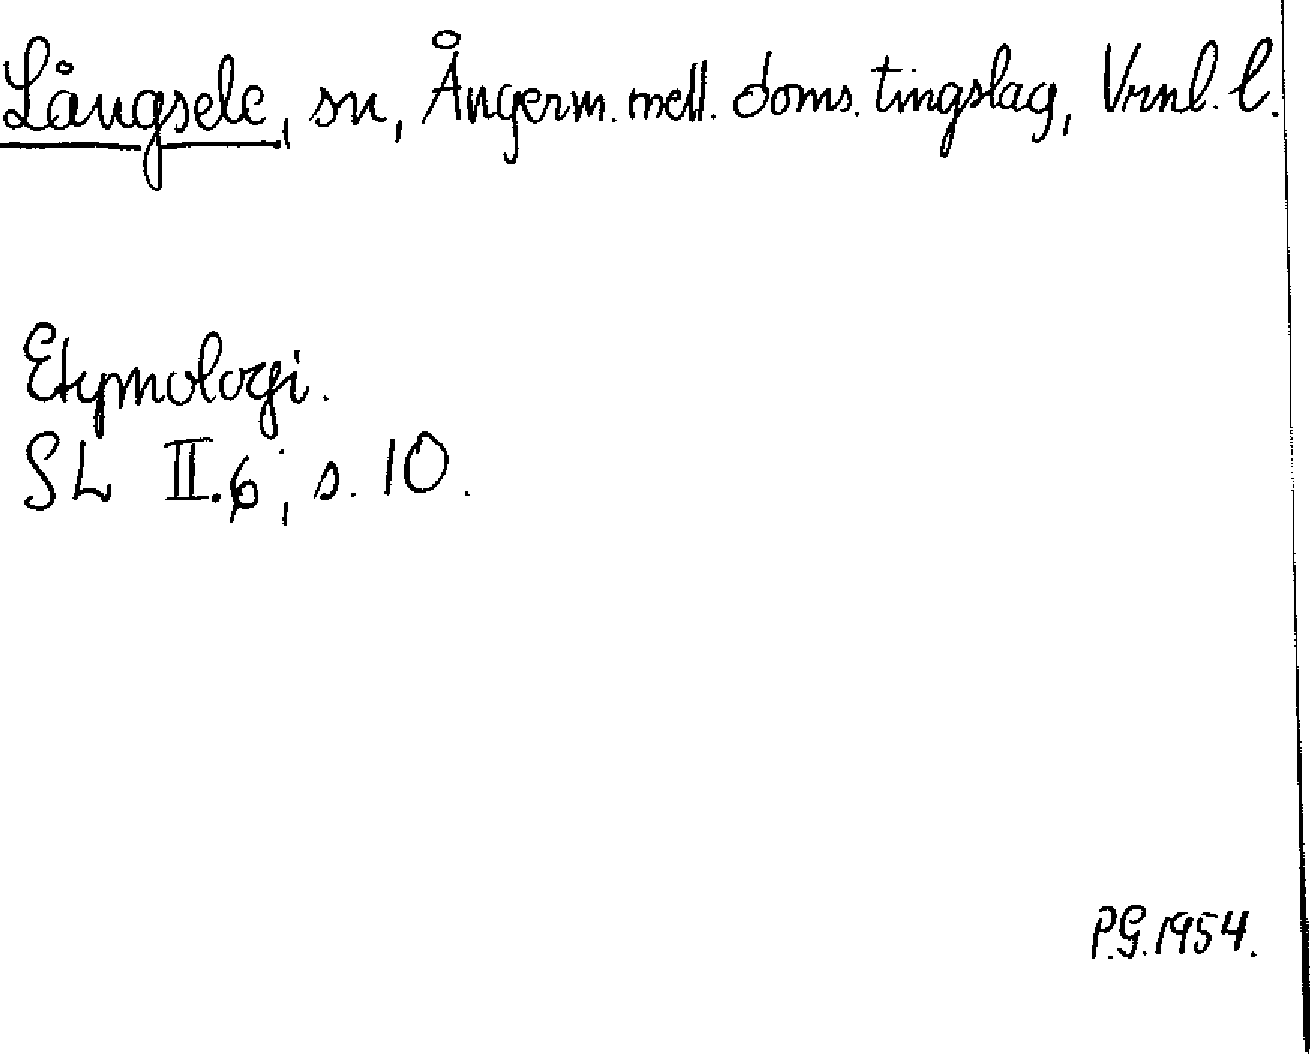 Långsele, sn, Ångerm. mell. doms. tingslag, Vrnl. l.
Etymologi.
SL II.6, s. 10.
P.G. 1954.